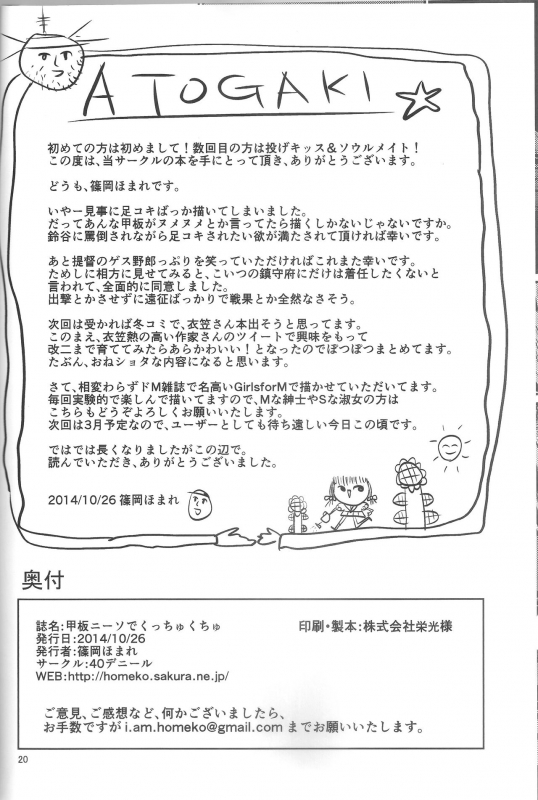 ATOGAKI
初めての方は初めまして！数回目の方は投げキッス＆ソウルメイト！
この度は、当サークルの本を手にとって頂き、ありがとうございます。
どうも、篠岡ほまれです。
いやー見事に足コキばっか描いてしまいました。
だってあんな甲板がヌメヌメとか言ってたら描くしかないじゃないですか。
鈴谷に罵倒されながら足コキされたい欲が満たされて頂ければ幸いです。
あと提督のゲス野郎っぷりを笑っていただければこれまた幸いです。
ためしに相方に見せてみると、こいつの鎮守府にだけは着任したくないと
言われて、全面的に同意しました。
出撃とかさせずに遠征ばっかりで戦果とか全然なさそう。
次回は受かれば冬コミで、衣笠さん本出そうと思ってます。
このまえ、衣笠熱の高い作家さんのツイートで興味をもって
改二まで育ててみたらあらかわいい！となったのでぽつぽつまとめてます。
たぶん、おねショタな内容になると思います。
さて、相変わらずドM雑誌で名高いGirlsforMで描かせていただいてます。
毎回実験的で楽しんで描いてますので、Mな紳士やSな淑女の方は
こちらもどうぞよろしくお願いいたします。
次回は3月予定なので、ユーザーとしても待ち遠しい今日この頃です。
ではでは長くなりましたがこの辺で。
読んでいただき、ありがとうございました。
2014/10/26 篠岡ほまれ
奥付
誌名：甲板ニーソでくっちゅくちゅ
発行日：2014/10/26
発行者：篠岡ほまれ
サークル：40デニール
WEB:http://homeko.sakura.ne.jp/
印刷・製本：株式会社栄光様
ご意見、ご感想など、何かございましたら、
お手数ですが i.am.homeko@gmail.com までお願いいたします。
20